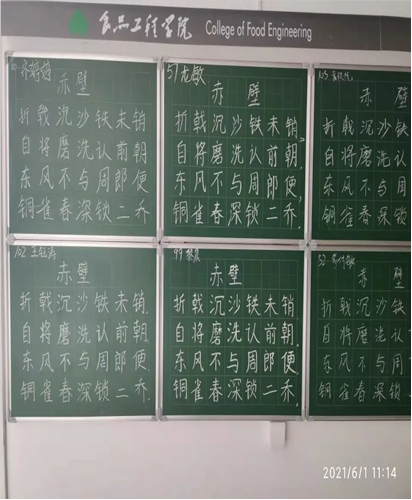 食品工程学院 College of Food Engineering
57 龙敏
赤 壁
折戟沉沙铁未销
自将磨洗认前朝
东风不与周郎便
铜雀春深锁二乔
赤 壁
折戟沉沙铁未销
自将磨洗认前朝
东风不与周郎便
铜雀春深锁二乔
103
赤 壁
折戟沉沙铁
自将磨洗认
东风不与周
铜雀春深锁
102
赤壁
折戟沉沙铁未销
自将磨洗认前朝
东风不与周郎便
铜雀春深锁二乔
99
赤壁
折戟沉沙铁未销
自将磨洗认前朝
东风不与周郎便
铜雀春深锁二乔
52
赤 壁
折戟沉沙
自将磨洗认
东风不与周
铜雀春深锁
2021/6/1 11:14